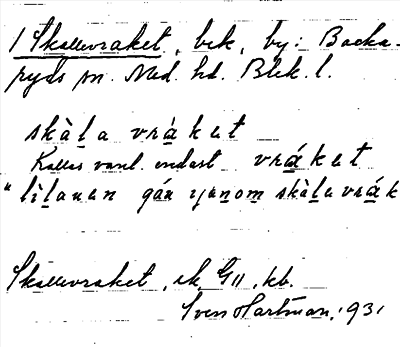 1 Skallevraket, bek, by: Backa-
ryds sn. Med. hd. Blek. l.
skàḷa vrákɛt
Kallas vanl. endast vrákɛt
"lìḷanɛn gár ɪɡɛnom skàḷavrák
Skallevraket, ek. G11, kb.
Sven Hartman, 1931